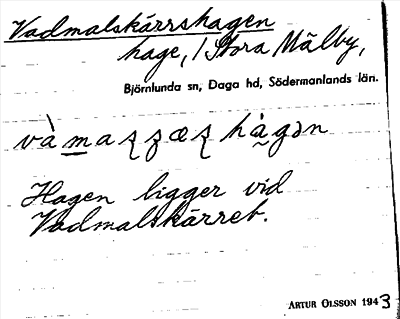 Vadmalskärrshagen
hage, / Stora Mälby,
Björnlunda sn, Daga hd, Södermanlands län.
Hagen ligger vid
Vadmalskärret.
ARTUR OLSSON 1943